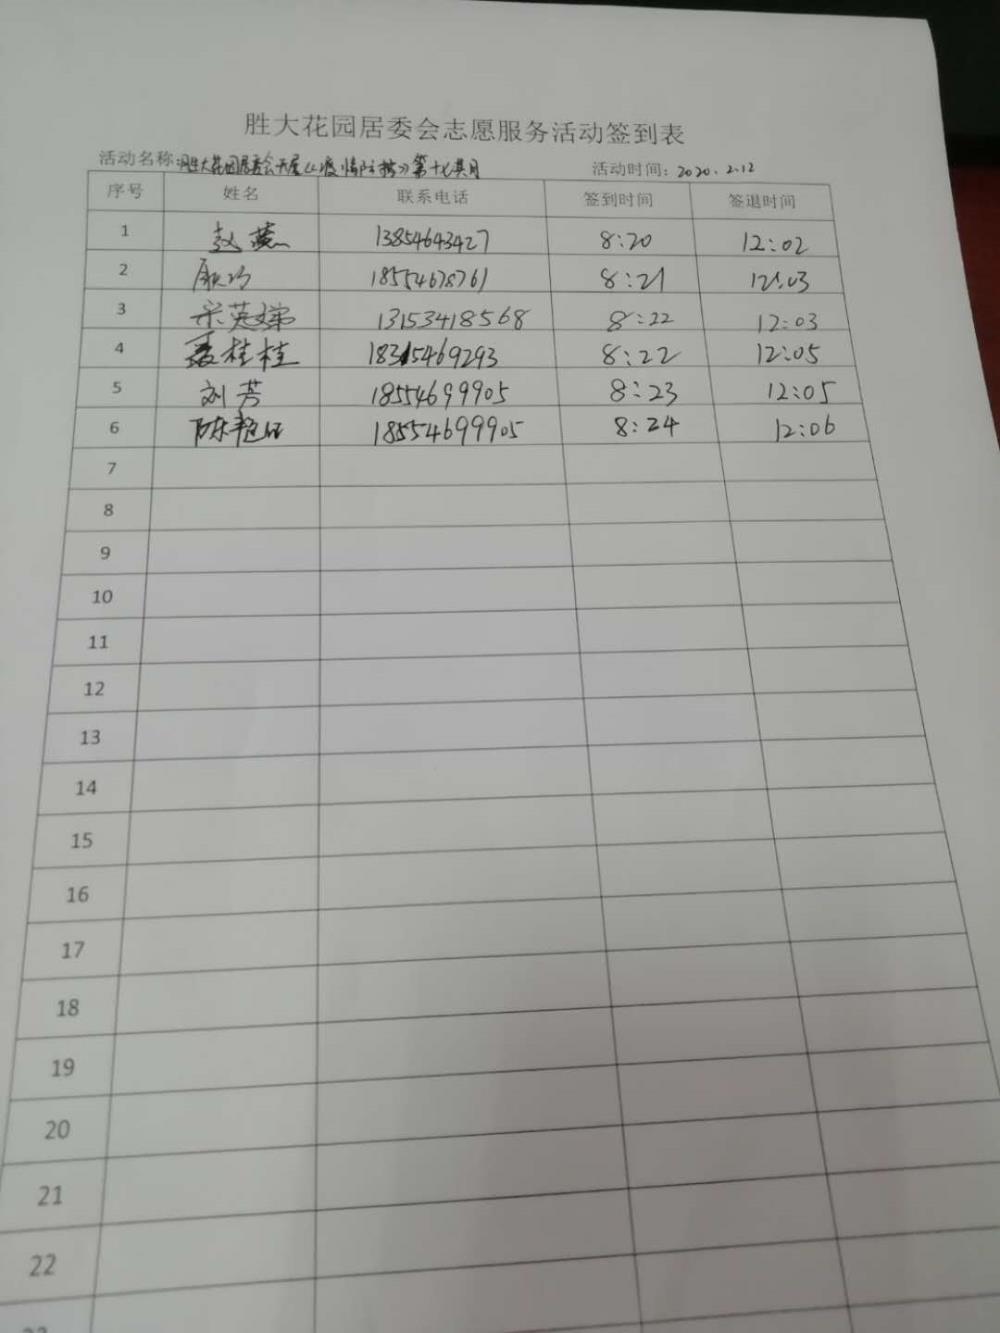 胜大花园居委会志愿服务活动签到表
活动名称:胜大花园居委会开展《疫情防控》第十七期 活动时间: 2020.2.12
序号 姓名 联系电话 签到时间 签退时间
1 赵燕 13854643427 8:20 12:02
2 18554678761 8:21 12:03
3 宋英娣 13153418568 8:22 12:03
4 聂桂桂 18315469293 8:22 12:05
5 刘芳 18554699905 8:23 12:05
6 陈艳红 18554699905 8:24 12:06
7
8
9
10
11
12
13
14
15
16
17
18
19
20
21
22